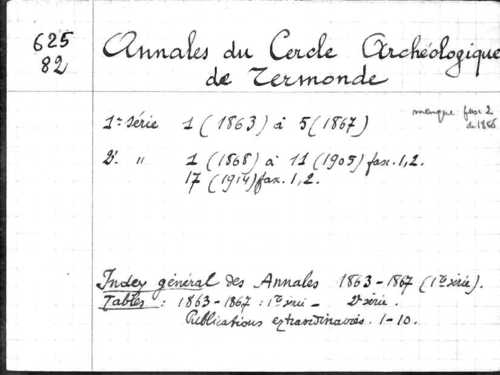 625
82
Annales du Cercle Archéologique
de Termonde
manque fasc 2
de 1886
1re Série 1 (1863) à 5 (1867)
2e. " 1 (1868) à 11 (1905) fasc. 1, 2.
17 (1914) fasc. 1, 2.
Index général des Annales 1863-1867 (1re série).
Tables : 1863-1867 : 1re série - 2e série.
Publications extraordinaires. 1-10.